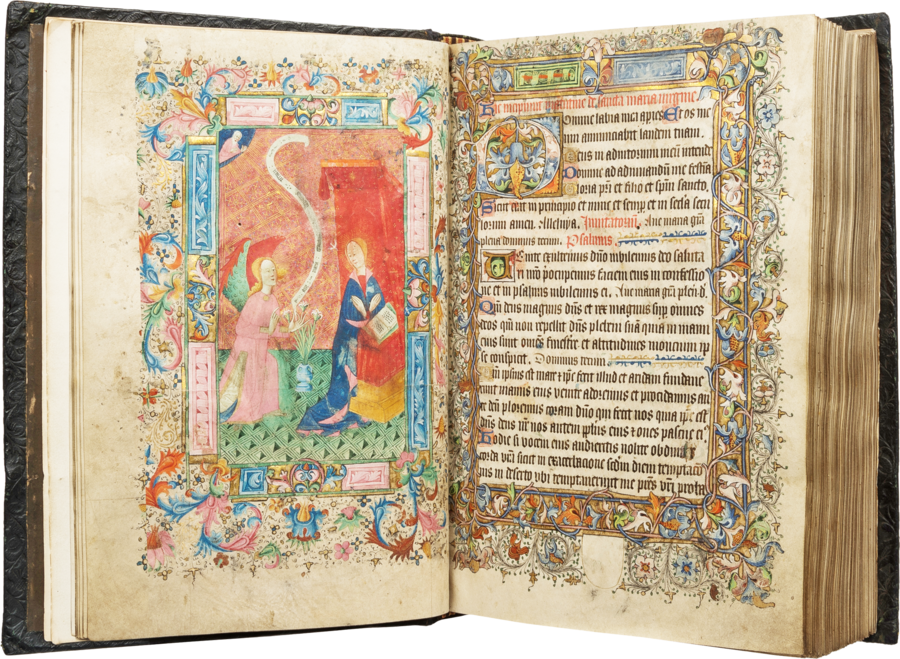 Hic incipiunt matutine de sancta maria virgine
Domine labia mea aperies Et os me
um annunciabit laudem tuam.
Deus in adiutorium meum intende
Domine ad adiuvandum me festina
Gloria pri et filio et spui sancto
Sicut erat in principio et nunc et semp et in secla secu
lorum amen. Alleluya. Invitatorium. Ave maria gra
plena dominus tecum. Psalmus.
Venite exultemus dno iubilemus deo saluta
ri nro preocupemus faciem eius in confessio
ne et in psalmis iubilemus ei. Ave maria gra plena d
Qm deus magnus dns et rex magnus sup omnes
deos qm non repellit dns plebem sua quia in manu
eius sunt oms fines tre et altitudines moncium ip
se conspicit. Dominus tecum.
Qm ipsius est mare et ipe fecit illud et aridam fundaue
runt manus eius venite adoremus et procidamus an
te dm ploremus coram dno qui fecit nos quia ipe est
dns deus nr nos autem pplus eius et oues pascue ei
Hodie si vocem eius audieritis nolite obdurare
corda vra sicut in exacerbacione scdm diem temptacois
in deserto vbi temptauerunt me pres vri proba